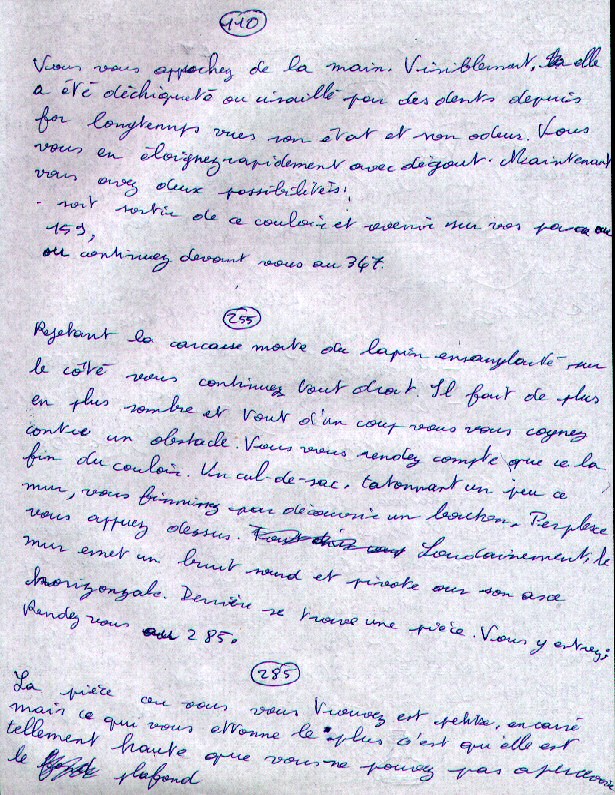 110
Vous vous approchez de la main. Visiblement, elle
a été déchiqueté ou cisaillé par des dents depuis
for longtemps vues son état et son odeur. Vous
vous en éloignez rapidement avec dégout. Maintenant
vous avez deux possibilités:
- soit sortir de ce couloir et revenir sur vos pas au
159,
ou continuez devant vous au 367.
255
Rejetant la carcasse morte du lapin ensanglanté sur
le côté vous continuez tout droit. Il fait de plus
en plus sombre et tout d'un coup vous vous cognez
contre un obstacle. Vous vous rendez compte que ce la
fin du couloir. Un cul-de-sac, tatonnant un peu ce
mur, vous par découvrir un bouton. Perplexe
vous appuez dessus. Soudainement, le
mur emet un bruit sourd et pivote sur son axe
horizongale. Derrière se trouve une pièce. Vous y entrez;
Rendez vous au 285.
285
La pièce ou vous vous trouvez est petite, en carré
mais ce qui vous ettonne le plus c'est qu'elle est
tellement haute que vous ne pouvez pas apercevoir
le plafond